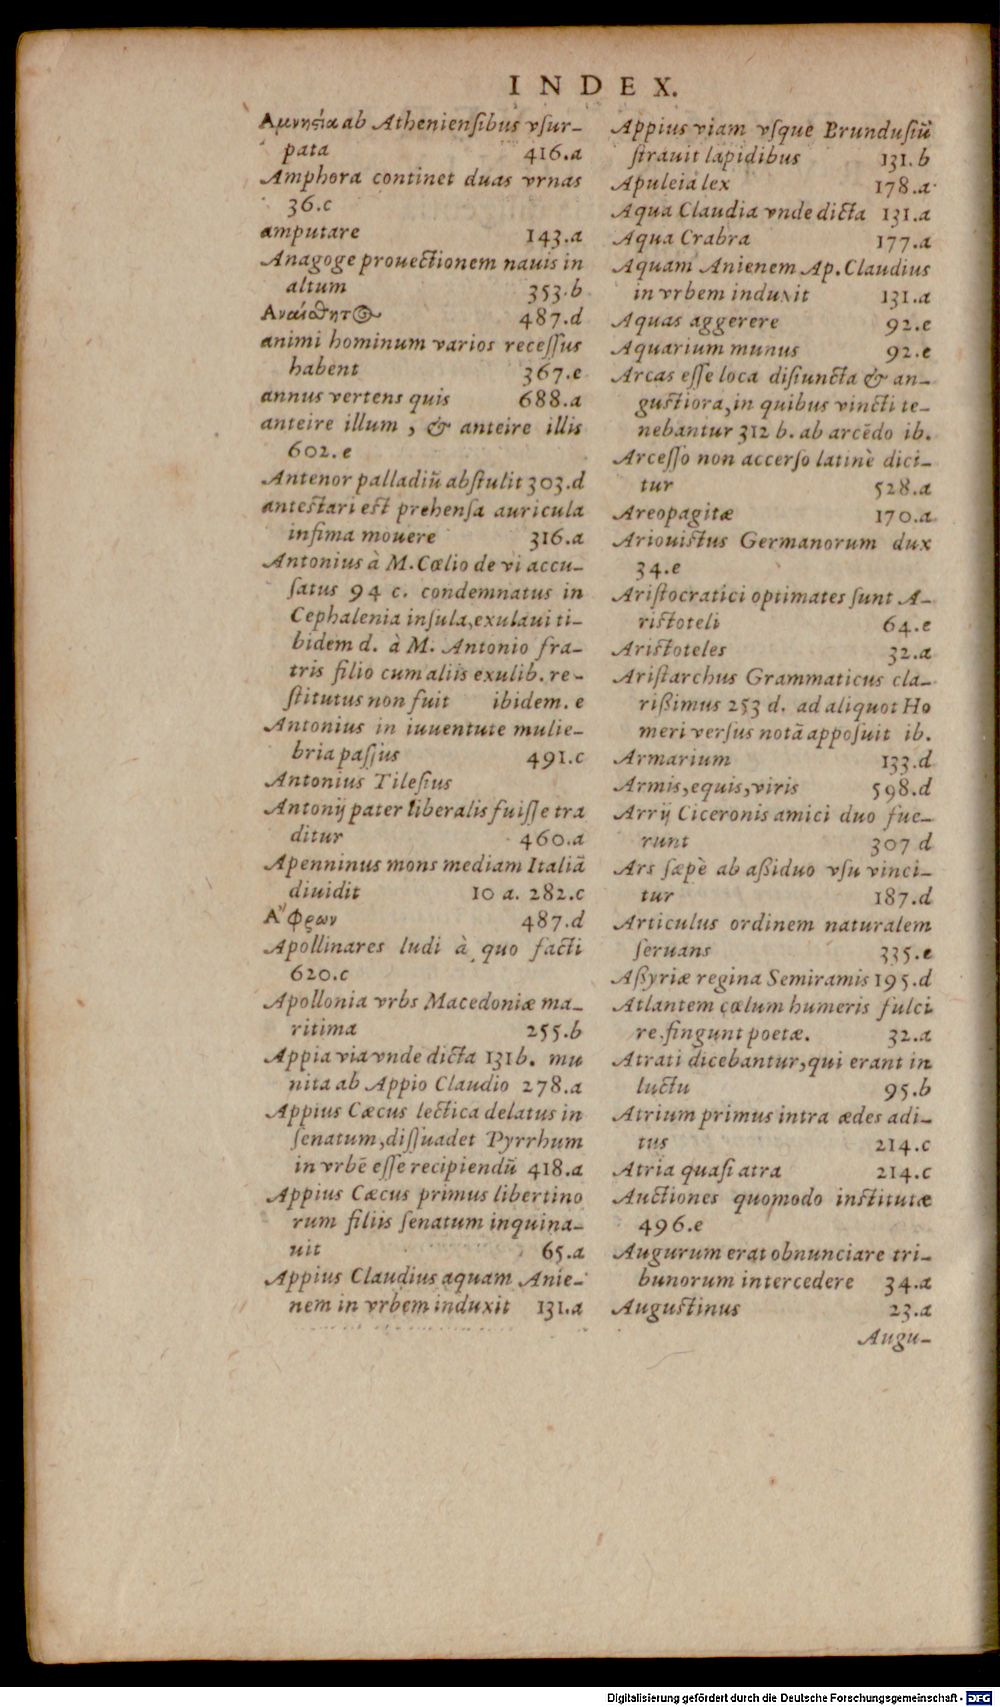 INDEX.
Αμνηςία ab Atheniensibus vsur-
pata 416.a
Amphora continet duas vrnas
36.c
amputare 143.a
Anagoge prouectionem nauis in
altum 353.b
Αναίσθητος 487.d
animi hominum varios recessus
habent 367.e
annus vertens quis 688.a
anteire illum, & anteire illis
602.e
Antenor palladiū abstulit 303.d
antestari est prehensa auricula
infima mouere 316.a
Antonius à M. Cœlio de vi accu-
satus 94 c. condemnatus in
Cephalenia insula, exulaui ti-
bidem d. à M. Antonio fra-
tris filio cum aliis exulib. re-
stitutus non fuit ibidem. e
Antonius in iuuentute mulie-
bria passus 491.c
Antonius Tilesius
Antonij pater liberalis fuisse tra
ditur 460.a
Apenninus mons mediam Italiā
diuidit 10 a. 282.c
Α῎φρων 487.d
Apollinares ludi à quo facti
620.c
Apollonia vrbs Macedoniæ ma-
ritima 255.b
Appia via vnde dicta 131 b. mu
nita ab Appio Claudio 278.a
Appius Cæcus lectica delatus in
senatum, dissuadet Pyrrhum
in vrbē esse recipiendū 418.a
Appius Cæcus primus libertino
rum filiis senatum inquina-
uit 65.a
Appius Claudius aquam Anie-
nem in vrbem induxit 131.a
Appius viam vsque Brundusiū
strauit lapidibus 131.b
Apuleia lex 178.a
Aqua Claudia vnde dicta 131.a
Aqua Crabra 177.a
Aquam Anienem Ap. Claudius
in vrbem induxit 131.a
Aquas aggerere 92.e
Aquarium munus 92.e
Arcas esse loca disiuncta & an-
gustiora, in quibus vincti te-
nebantur 312 b. ab arcēdo ib.
Arcesso non accerso latinè dici-
tur 528.a
Areopagitæ 170.a
Ariouistus Germanorum dux
34.e
Aristocratici optimates sunt A-
ristoteli 64.e
Aristoteles 32.a
Aristarchus Grammaticus cla-
rißimus 253 d. ad aliquot Ho
meri versus notā apposuit ib.
Armarium 133.d
Armis, equis, viris 598.d
Arrij Ciceronis amici duo fue-
runt 307 d
Ars sæpè ab aßiduo vsu vinci-
tur 187.d
Articulus ordinem naturalem
seruans 335.e
Aßyriæ regina Semiramis 195.d
Atlantem cælum humeris fulci
re fingunt poetæ. 32.a
Atrati dicebantur, qui erant in
luctu 95.b
Atrium primus intra ædes adi-
tus 214.c
Atria quasi atra 214.c
Auctiones quomodo institutæ
496.e
Augurum erat obnunciare tri-
bunorum intercedere 34.a
Augustinus 23.a
Augu-
Digitalisierung gefördert durch die Deutsche Forschungsgemeinschaft - DFG